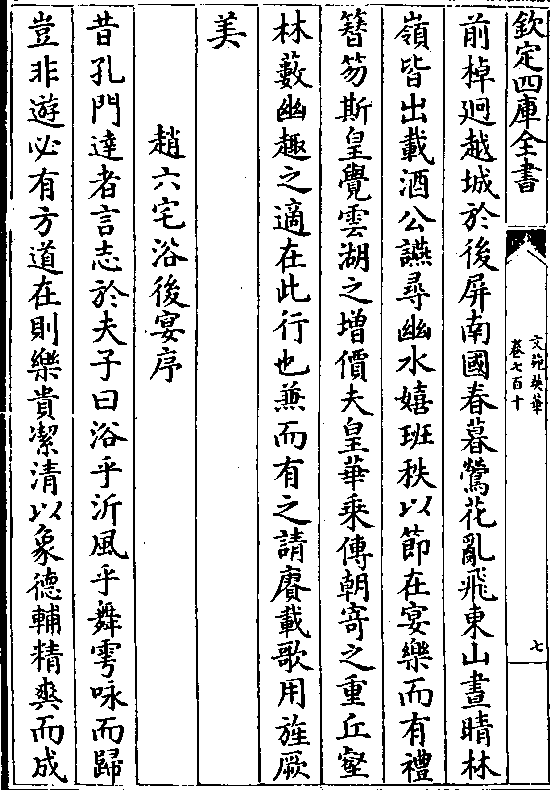 欽定四庫全書
文苑英華
卷七百十
七
前棹迴越城於後屏南國春暮鶯花亂飛東山晝晴林
嶺皆出載酒公讌尋幽水嬉班秩以節在宴樂而有禮
簪笏斯皇覺雲湖之增價夫皇華乘傳朝寄之重丘壑
林藪幽趣之適在此行也兼而有之請賡載歌用旌厥
美
趙六宅浴後宴序
昔孔門達者言志於夫子曰浴乎沂風乎舞雩咏而歸
豈非遊必有方道在則樂貴潔清以象德輔精爽而成